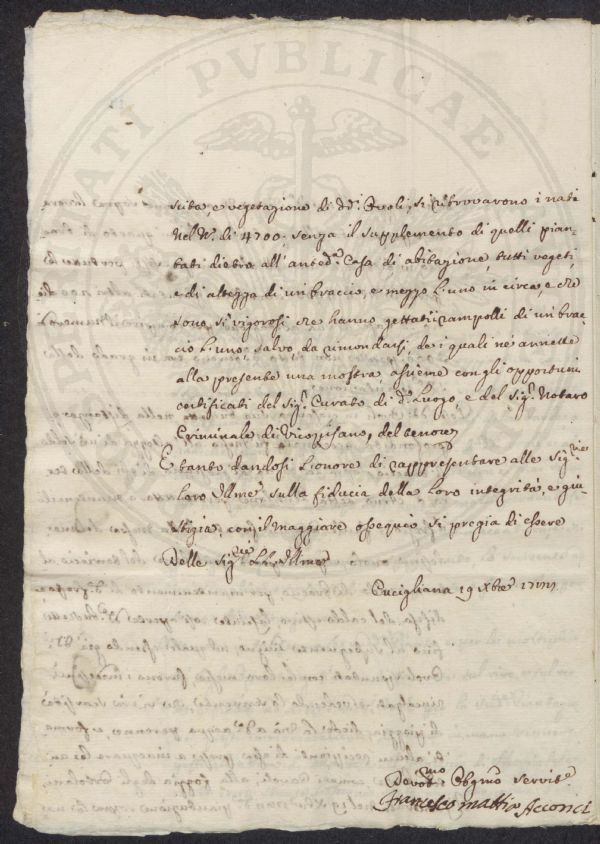 PVBLICAE
scita, e vegetazione di dd.i Ovoli, si ritrovarono i nati
nel N.o di 4700. senza il supplemento di quelli pian-
tati dietro all'anted.a Casa di abitazione, tutti vegeti,
e di altezza di un braccio, e mezzo l'uno in circa, e che
sono sì vigorosi che hanno gettati rampolli di un brac-
cio l'uno, salvo, da rimondarsi, de i quali ne annette
alla presente una mostra, assieme con gli opportuni
certificati del Sig.r Curato di d.o Luogo, e del Sig.r Notaro
Criminale di Vicopisano, del tenore
E tanto dandosi l'onore di rappresentare alle Sig.rie
Loro Ill.me sulla fiducia della loro integrità, e giu-
stizia, con il maggiore ossequio si pregia di essere
Delle Sig.rie LL. Ill.me
Cucigliana 19 Xbre
Devot.mo Obg.mo Servit.e
Francesco Mattia Acconci